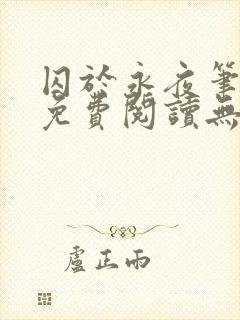 囚於永夜筆
免費閱讀無
盧正雨